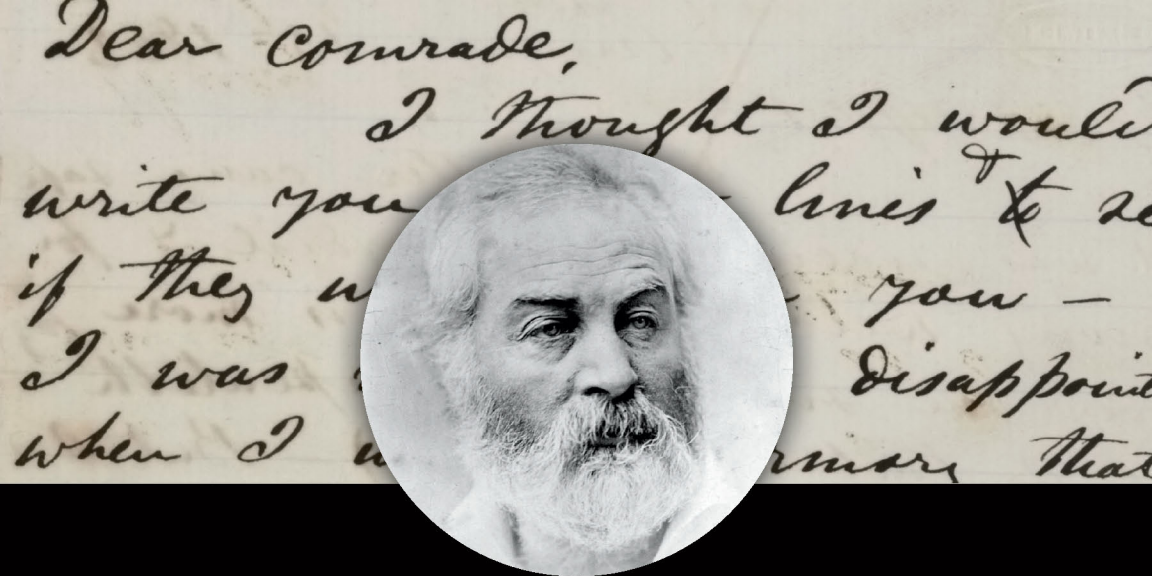 Dear Comrade,
I thought I would
write you lines & to se
if they you —
I was disappoint
when I that